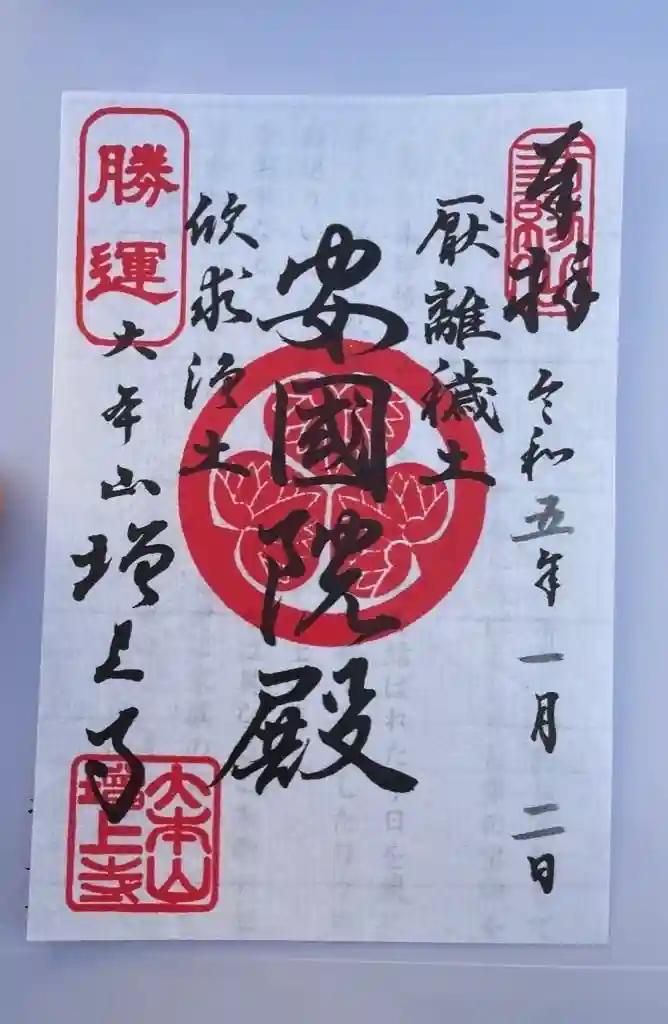 奉拝
令和五年一月二日
厭離穢土
安國院殿
欣求浄土
勝運
大本山増上寺
大本山
増上寺